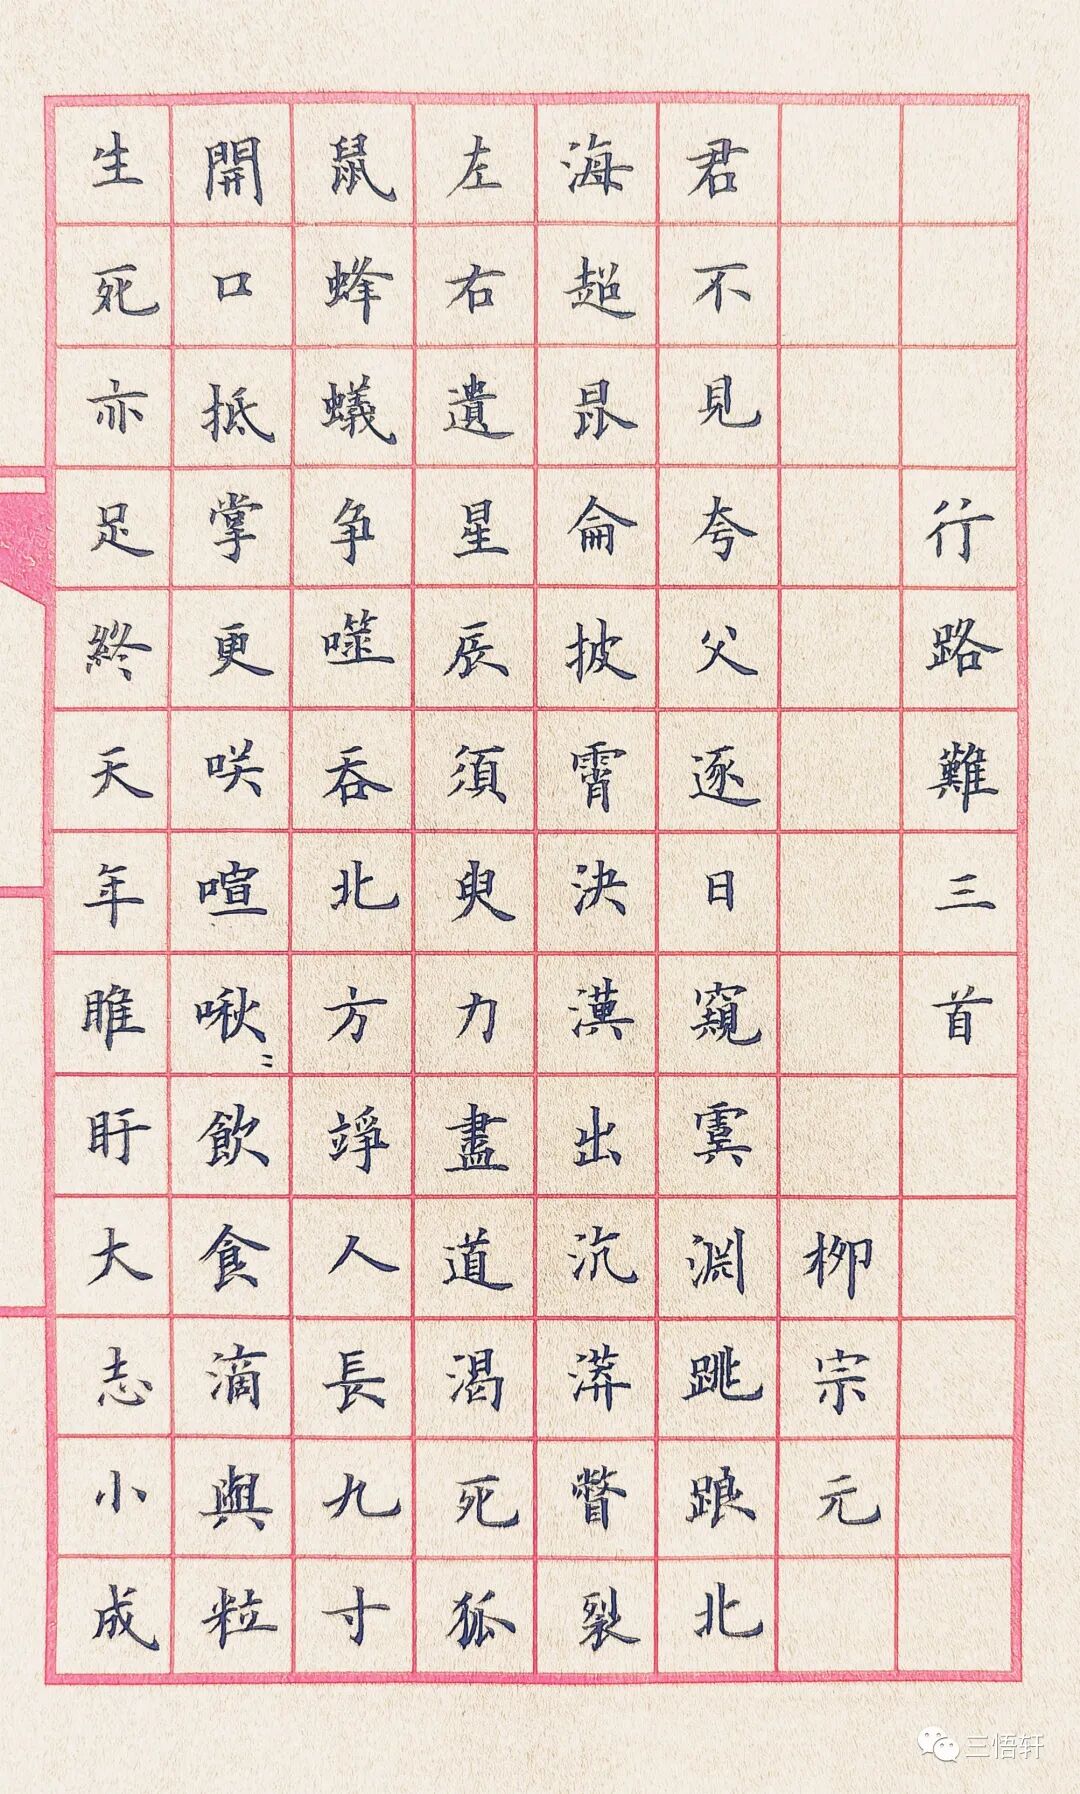 行路難三首
柳宗元
君不見夸父逐日窺虞淵跳踉北
海超昆侖披霄決漢出沆漭瞥裂
左右遺星辰須臾力盡道渴死狐
鼠蜂蟻争噬吞北方竫人長九寸
開口抵掌更咲喧啾〻飲食滴與粒
生死亦足終天年睢盱大志小成
三悟轩